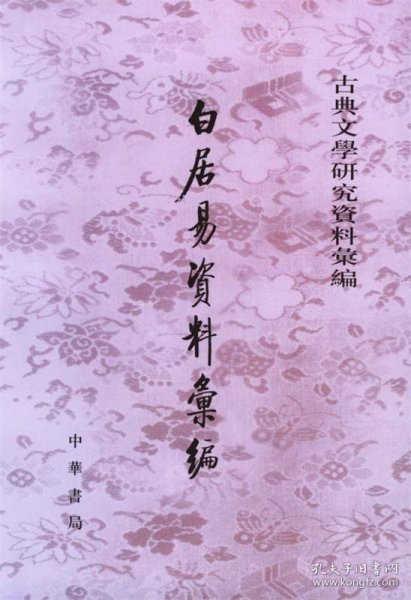 古典文學研究資料彙編
白居易資料彙編
中華書局
孔夫子旧书网
www.kongfz.com